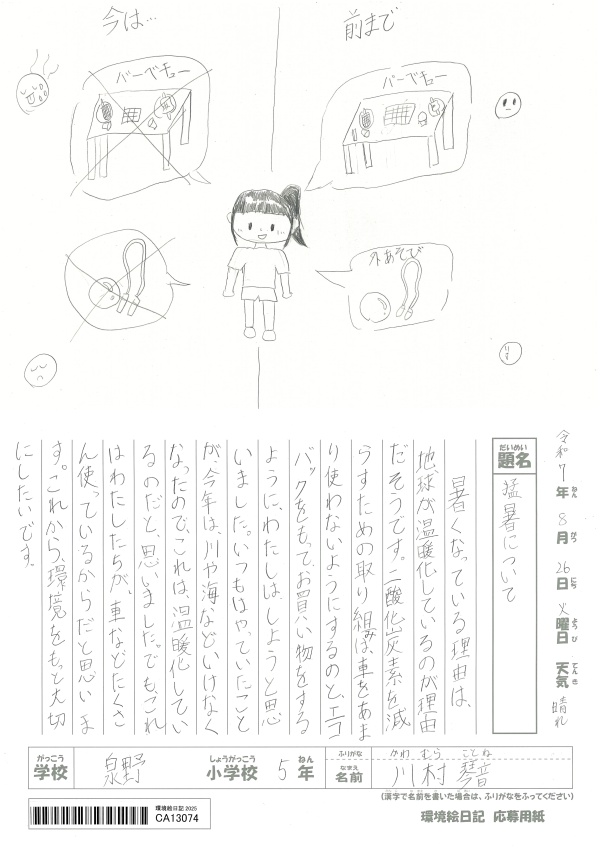 今は…
前まで
バーベキュー
バーベキュー
外あそび
令和7年 8月 26日 火曜日 天気 晴れ
ねん がつ にち ようび てんき
だいめい
題名
猛暑について
暑くなっている理由は、
地球が温暖化しているのが理由
だそうです。二酸化炭素を減
らすための取り組みは、車をあま
り使わないようにするのと、エコ
バックをもって、お買い物をする
ように、わたしは、しようと思
いました。いつもはやっていたこと
が、今年は、川や海などいけなく
なったので、これは、温暖化してい
るのだと、思いました。でも、これ
はわたしたちが、車などたくさ
ん使っているからだと思いま
す。これから、環境をもっと大切
にしたいです。
がっこう
学校
泉野
しょうがっこう
小学校
5
ねん
年
ふりがな
かわ むら ことね
なまえ
名前
川村 琴音
(漢字で名前を書いた場合は、ふりがなをふってください)
環境絵日記 2025
CA13074
環境絵日記 応募用紙